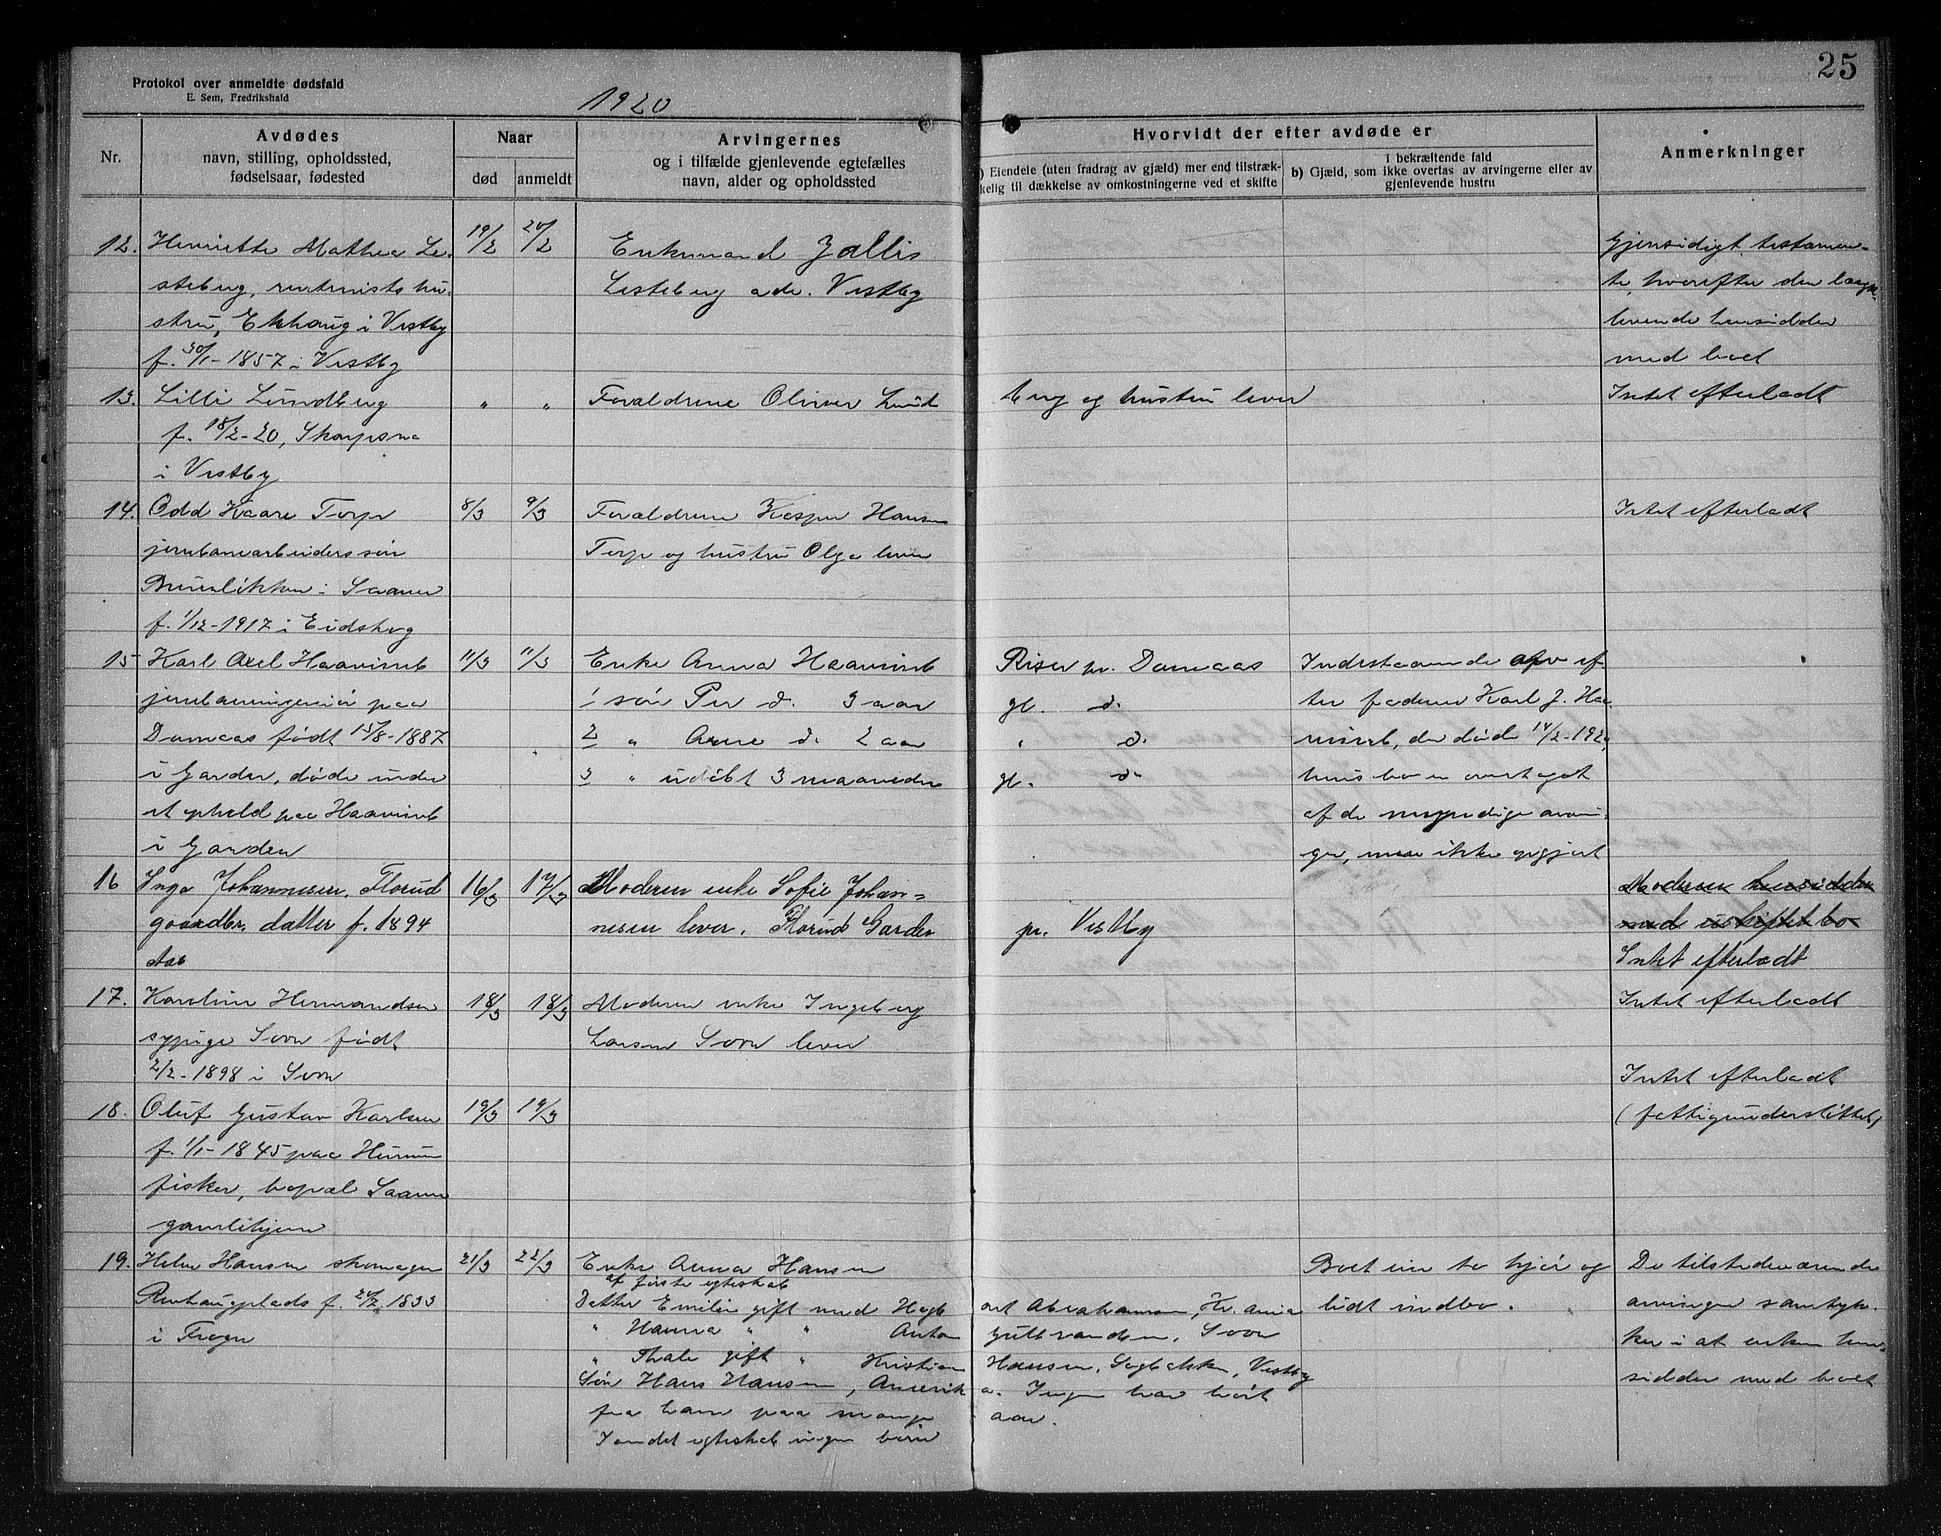 25
Protokol over anmeldte dødsfald
E. Sem, Fredrikshald
1920
Nr.
Avdødes
navn, stilling, opholdssted,
fødselsaar, fødested
Naar
død
anmeldt
Arvingernes
og i tilfælde gjenlevende egtefælles
navn, alder og opholdssted
Hvorvidt der efter avdøde er
) Eiendele (uten fradrag av gjæld) mer end tilstræk-
kelig til dækkelse av omkostningerne ved et skifte
I bekræftende fald
b) Gjæld, som ikke overtas av arvingerne eller av
gjenlevende hustru
Anmerkninger
12. Henriette Mathea Le-
steberg, rentenists hu-
stru, Ekhaug i Vestby
f. 30/1-1857 i Vestby
19/2
20/2
Enkemand
Lesteberg adr. Vestby
Gjensidigt testamen-
te, hvorefter den læng-
levende hensidder
med boet
13. Lilli Lundberg
f. 18/2-20, Skorpsna
i Vestby
" "
Forældrene Oliver Lund
berg og hustru lever
Intet efterladt
14. Odd Kaare Torp
jernbanearbeiderssøn
i Saaner
f. 1/12-1917 i Eidskog
8/3
9/3
Forældrene Kasper Hansen
Torp og hustru Olga lever
Intet efterladt
15 Karl Axel Haavimb
jernbaneingeniør paa
Domaas født 15/8-1887
i Garder, døde under
et ophold paa Haavimb
i Garder
11/3
11/3
Enke Anna Haavimb
1 søn Per d. 3 aar
2 " Arne d. 2 aar
3 " udøbt 3 maaneder
Riser pr. Domaas
gl. d.
" d.
gl. d.
Indestaaende arv ef-
ter faderen Karl J. Haa
vimb, der døde 14/2-1920,
hvis bo er overtaget
af de myndige arvin-
ger, men ikke opgjort
16 Inga Johannesen, Florud
gaardbr. datter f. 1894
Aas
16/3
17/3
Moderen enke Sofie Johan-
nesen lever, Florud Garder
pr. Vestby
Moderen hensidder
med uskiftet bo
Intet efterladt
17. Karoline Hermandsen
sypige Sorn født
2/2-1898 i Sorn
18/3
18/3
Moderen enke Ingeborg
Larsen Sorn lever
Intet efterladt
18. Oluf Gustav Karlsen
f. 1/1-1845 paa Hurum
fisker, bopæl Saaner
gamlehjem
19/3
19/3
Intet efterladt
(fattigunderstøttet)
19. Helm Hansen skomager
f. 1833
i Frogn
21/3
22/3
Enke Anna Hansen
af første egteskab
Datter Emilie gift med Hagb
" Hanna " " Anton
" Thale gift " Kristian
Søn Hans Hansen, Amerik
fra ham paa mange
I andet egteskab ingen børn
art Abrahamsen, Kr.ania
Gulbrandsen, Sorn
Hansen, Vestby
a. Ingen har hørt
aar.
Boet eier to kjør og
lidt indbo.
De tilstedeværende
arvinger samtyk-
ker i at enken hen-
sidder med boet